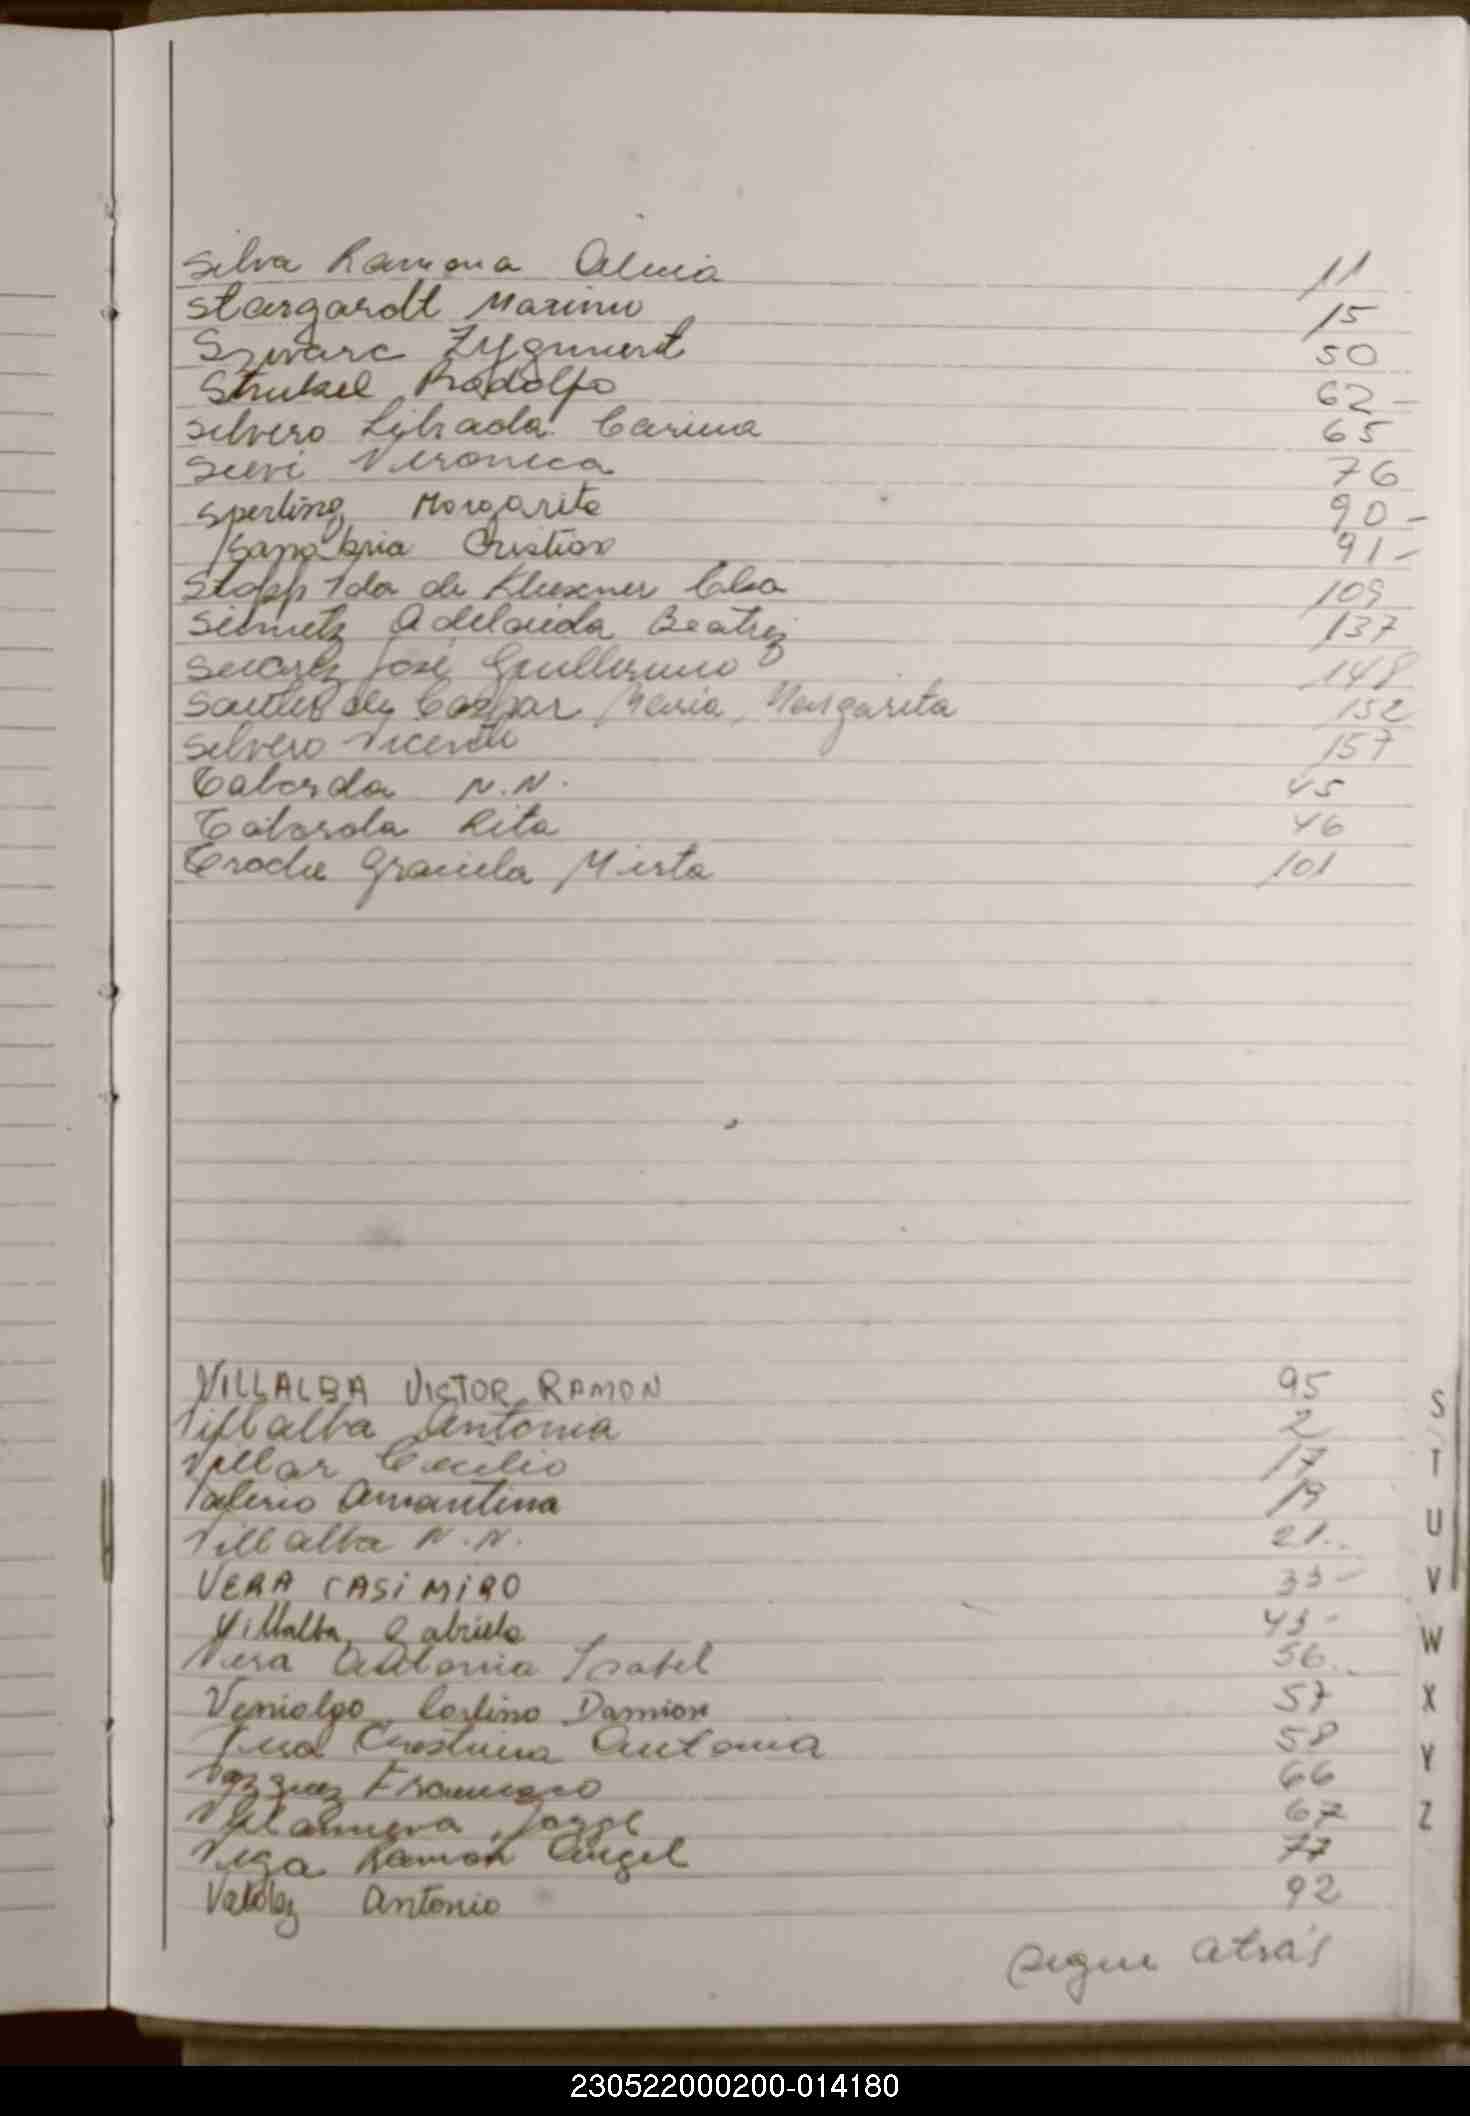 Silva Ramona Alicia 11
Stargardt Maximo 15
Szwarc Zygmunt 50
Strukel Rodolfo 62 -
Silvero Librada Carina 65
Veronica 76
Sperling Margarita 90 -
Sanabria Cristian 91 -
Stopp Ida de Klexner Elsa 109
Seimetz Adelaida Beatriz 137
Suarez José Guillermo 148
de Gaspar Maria Margarita 152
Silvero Vicente 157
Taborda N.N. 45
Taborda Rita 46
Graciela Mirta 101
VILLALBA VICTOR RAMON 95
Villalba Antonia 2
Villar Cecilio 17
Valerio Amantina 19
Villalba N.N. 21..
VERA CASIMIRO 33 -
Villalba Gabriela 43 -
Vera Antonia Isabel 56..
Venialgo Carlino Damian 57
Vera Cristina Antonia 58
Vazquez Francisco 66
Villanueva Jorge 67
Vega Ramon Angel 77
Valdez Antonio 92
segue atrás
S
T
U
V
W
X
Y
Z
230522000200-014180